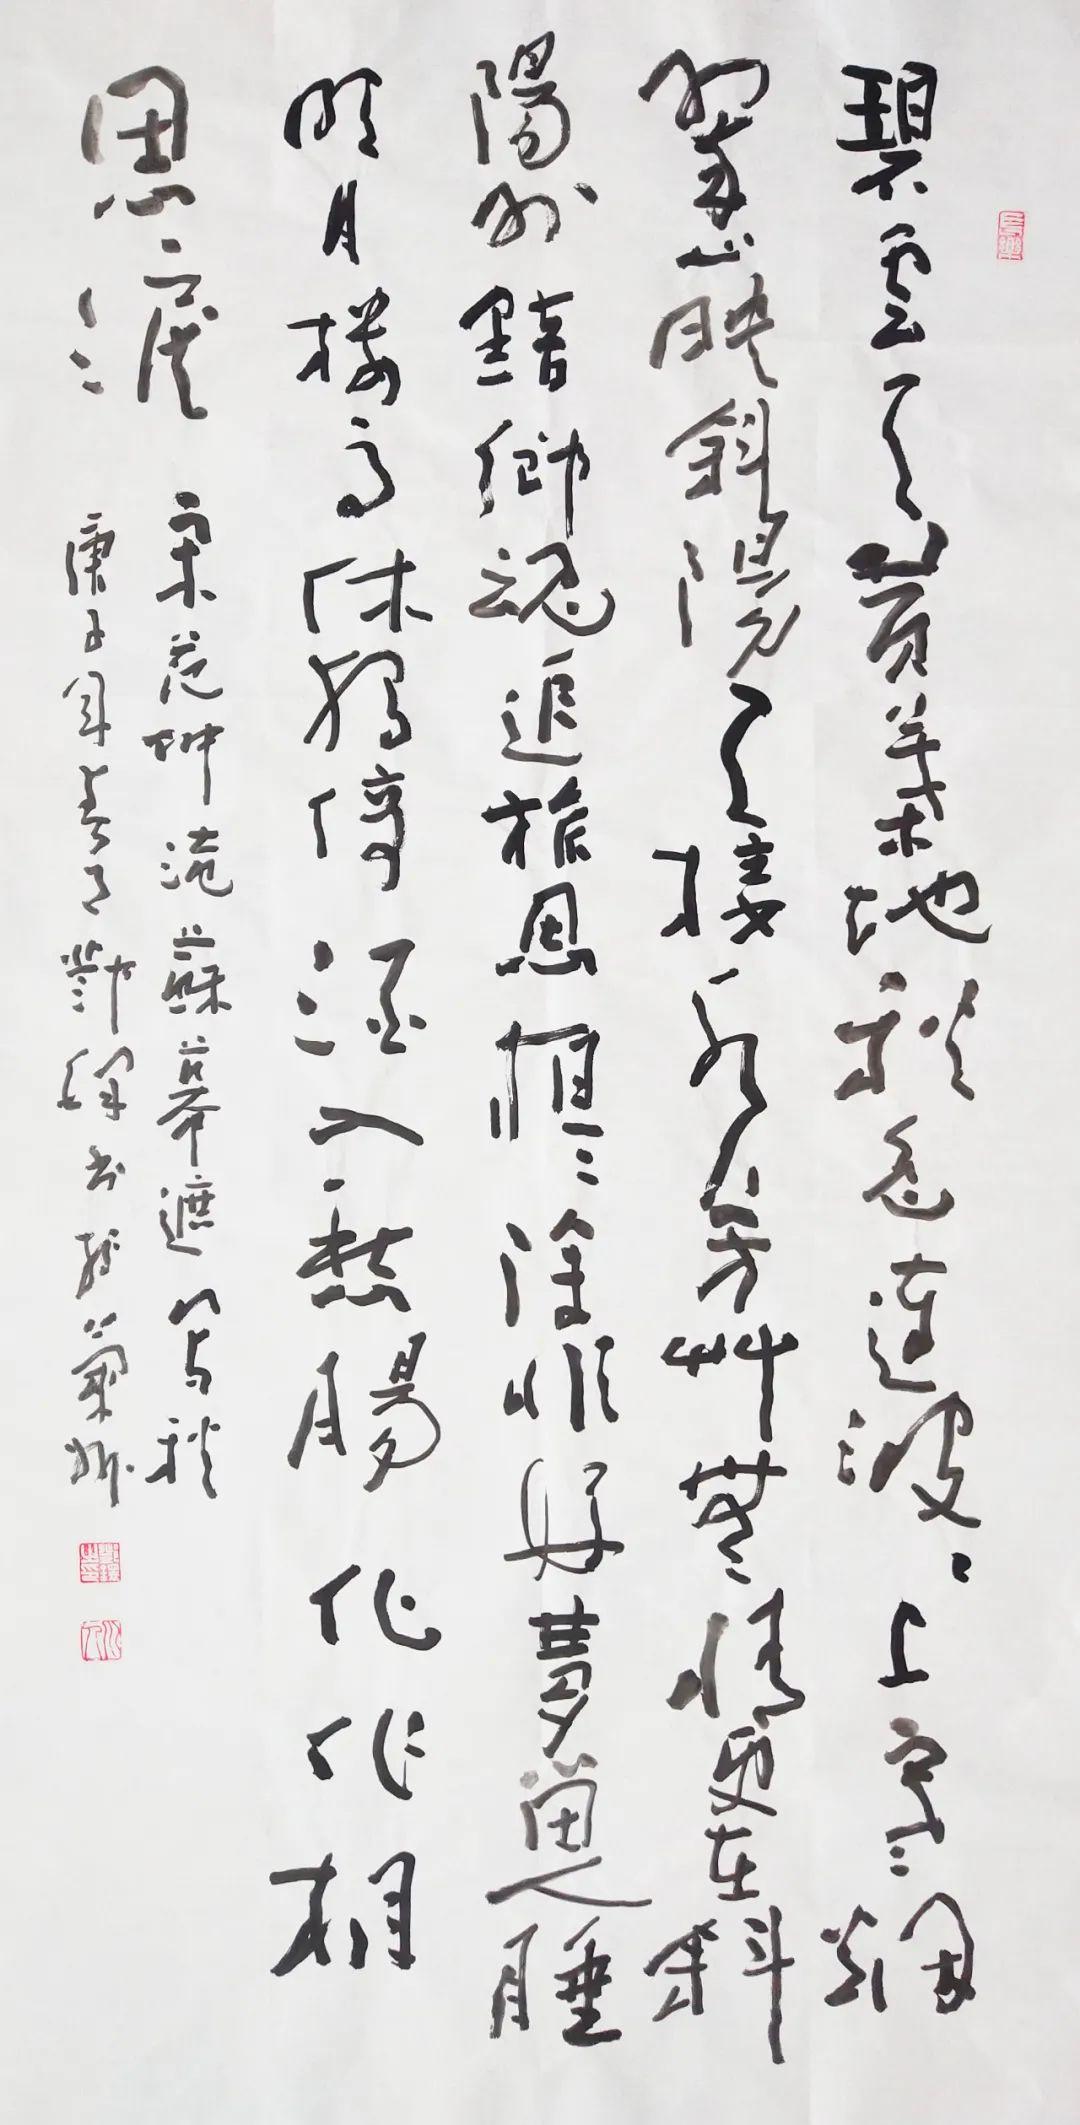 長樂
碧雲天黃葉地秋色連波〻上寒烟
翠山映斜陽天接水芳艸無情更在斜
陽外黯鄉魂追旅思〻除非好夢留人睡
明月樓高休獨倚酒入愁腸化作相
思淚
宋范仲淹蘇幕遮寫秋
庚子年春月書於蘭州